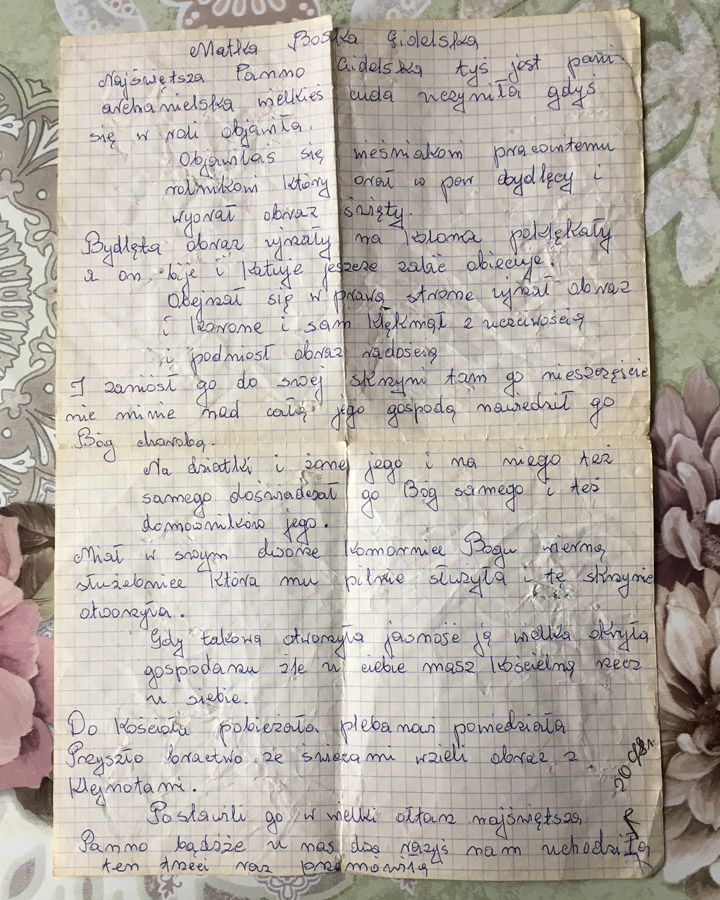 Matka Boska Gidelska
Najświętsza Panno Gidelska tyś jest pani
archanielska wielkieś cuda uczyniła gdyś
się w roli objawiła.
Objawiłaś się wieśniakowi pracowitemu
rolnikowi który orał w pow bydlęcy i
wyorał obraz święty.
Bydlęta obraz ujrzały na kolana poklękały
a on bije i katuje jeszcze zabić obiecuje.
Obejrzał się w prawą strone ujrzał obraz
i korone i sam klęknął z uczciwością
i podniosł obraz radością
I zaniósł go do swej skrzyni tam go nieszczęście
nie minie nad całą jego gospodą nawiedził go
Bóg chorobą.
Na dziatki i żonę jego i na niego też
samego doświadczał go Bóg samego i też
domowników jego.
Miał w swym dworze komornice Bogu wierną
służebnice która mu pilnie służyła i tę skrzynie
otworzyła.
Gdy takową otworzyła jasność ją wielka okryła
gospodarzu źle u ciebie masz kościelną rzecz
u siebie.
Do kościoła pobieżała plebanowi powiedziała
Przyszło bractwo ze świecami wzieli obraz z
klejnotami.
Postawili go w wielki ołtarz najświętsza
Panno bądźże u nas dwa razyś nam uchodziła
ten trzeci raz przemówiła